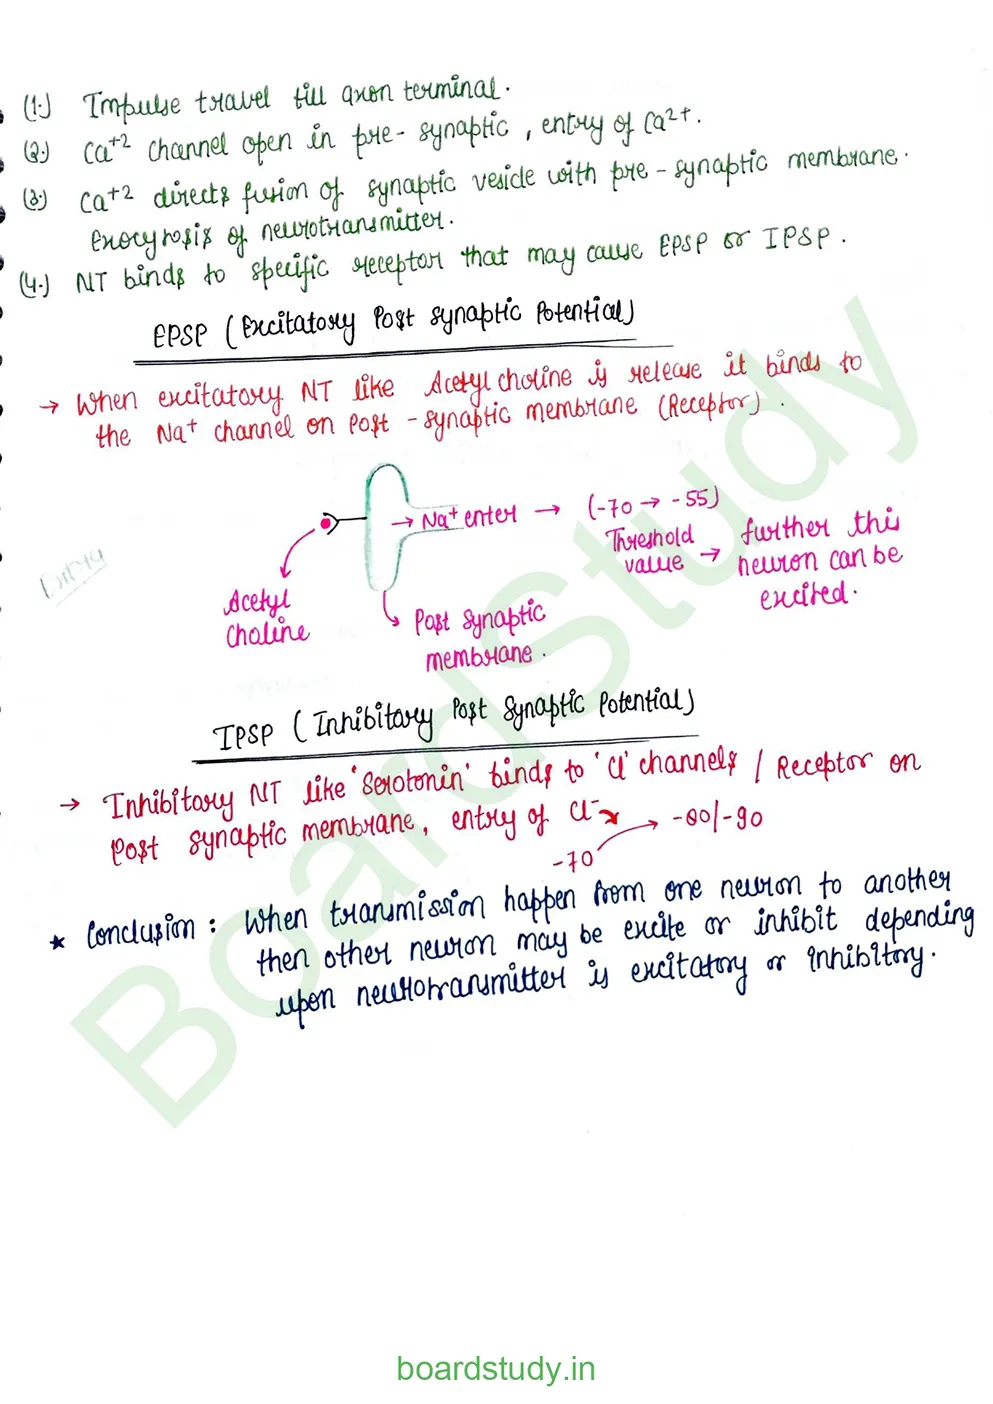 (1.) Impulse travel till axon terminal.
(2.) Ca+2 channel open in pre-synaptic, entry of Ca2+.
(3.) Ca+2 directs fusion of synaptic vesicle with pre-synaptic membrane.
Exocytosis of neurotransmitter.
(4.) NT binds to specific receptor that may cause EPSP or IPSP.
EPSP (Excitatory Post Synaptic Potential)
→ When excitatory NT like Acetyl choline is release it binds to
the Na+ channel on Post-synaptic membrane (Receptor).
→ Na+ enter → (-70 → -55)
Threshold
value →
further this
neuron can be
excited.
Acetyl
choline
Post synaptic
membrane.
IPSP (Inhibitory Post Synaptic Potential)
→ Inhibitory NT like 'Serotonin' binds to 'Cl' channels / Receptor on
Post synaptic membrane, entry of Cl-
-70 → -80/-90
★ Conclusion : When transmission happen from one neuron to another
then other neuron may be excite or inhibit depending
upon neurotransmitter is excitatory or inhibitory.
BoardStudy
boardstudy.in